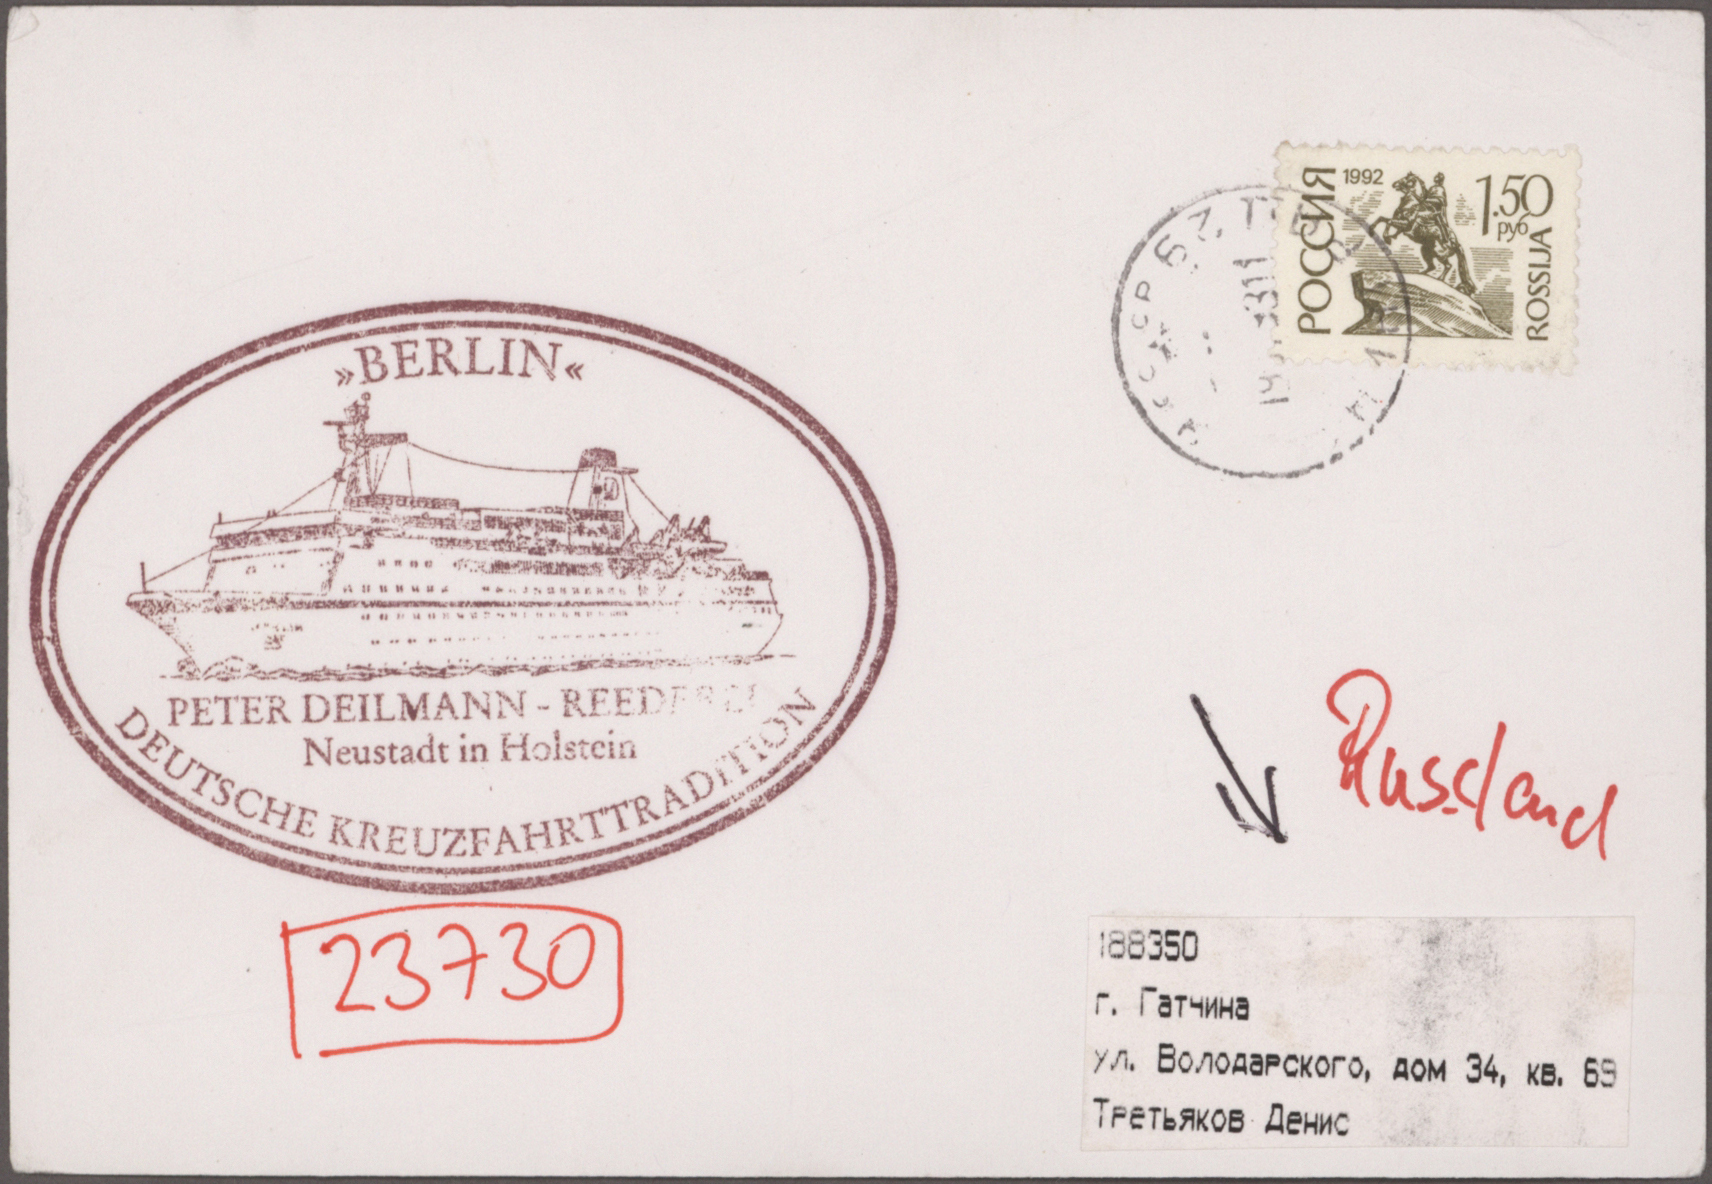 »BERLIN«
PETER DEILMANN - REEDEREI
Neustadt in Holstein
DEUTSCHE KREUZFAHRTTRADITION
23730
РОССИЯ
1992
1.50
руб
ROSSIJA
СССР
Russland
188350
г. Гатчина
ул. Володарского, дом 34, кв. 69
Третьяков Денис